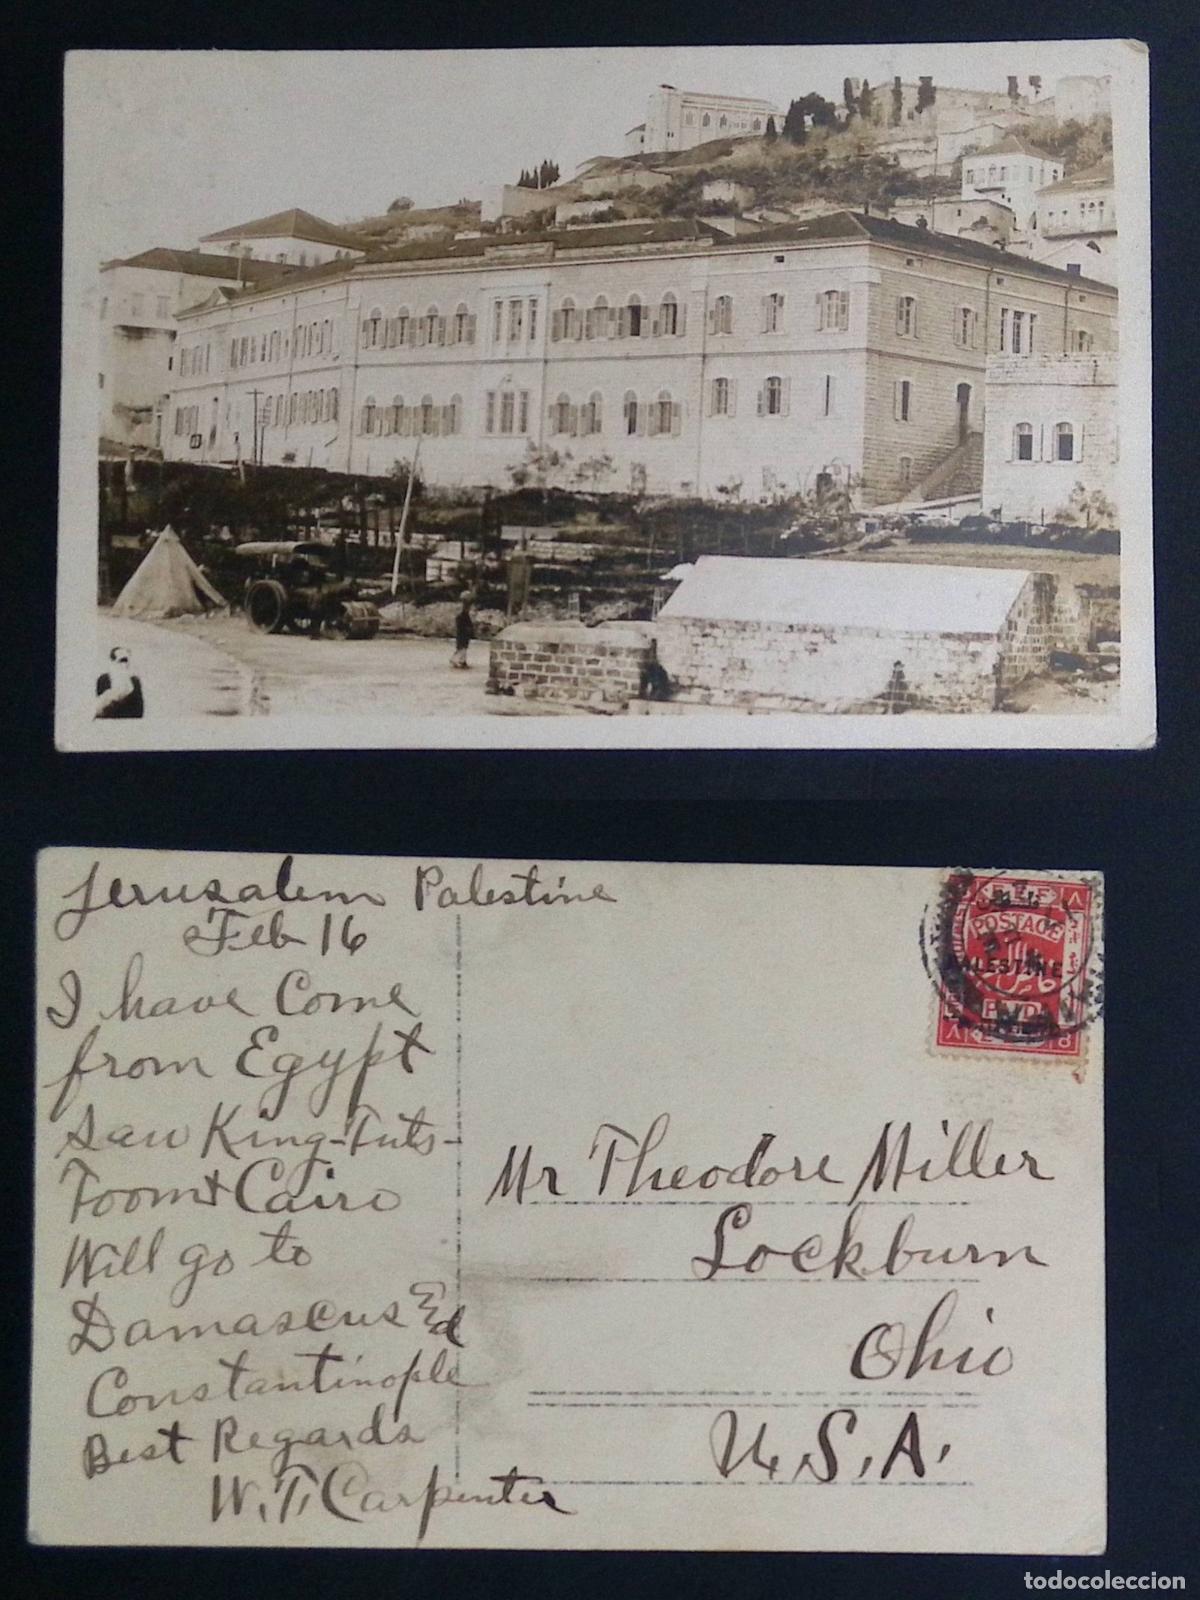 Jerusalem Palestine
Feb 16
I have Come
from Egypt
saw King-Tuts-
Toomt Cairo
Will go to
Damascus
Constantinople
Best Regards
W.T. Carpenter
E.E.F
POSTAGE
PALESTINE
PAID
8
Mr Theodore Miller
Lockburn
Ohio
U.S.A.
todocoleccion